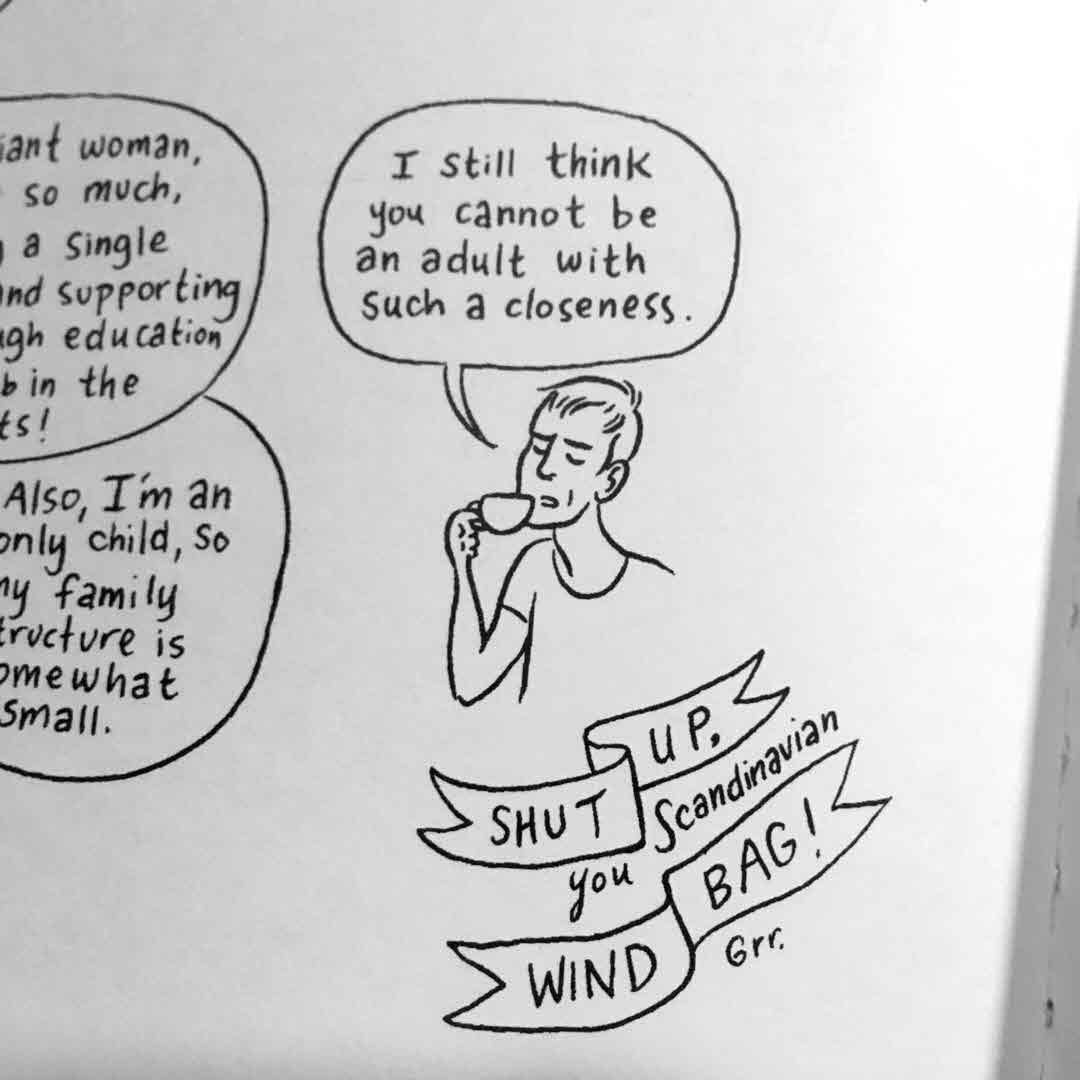 woman,
so much,
a single
and supporting
education
in the
Also, I'm an
only child, so
family
structure is
somewhat
small.
I still think
you cannot be
an adult with
such a closeness.
SHUT UP,
you Scandinavian
WIND BAG!
Grr.